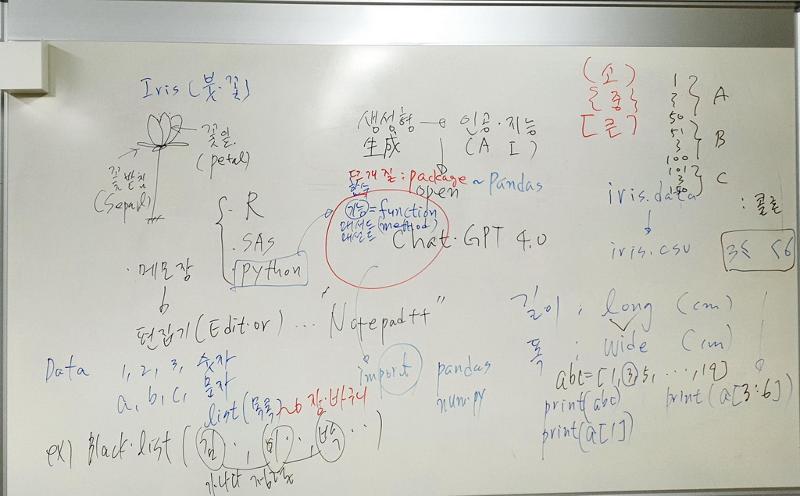 Iris (붓·꽃)
꽃잎
(petal)
꽃받침
(Sepal)
R
SAS
python
·메모장
편집기(Edit·or) ... "Notepad++"
Data 1, 2, 3, 숫자
a, b, c, 문자
list(목록)
ex) Black·list (김··, 이··, 박··)
가나다
생성형 인공·지능
生成 (A I)
package ~ pandas
함수
open
기능=function
(method)
Chat·GPT 4.0
import pandas
num·py
(소)
{중}
[큰]
1
50 A
51
100 B
101
150 C
iris.data
iris.csv
: 콜론
3≤ <6
길이 : long (cm)
폭 : wide (cm)
abc=[1,3,5, ..., 19]
print(abc) print(a[3:6])
print(a[1])